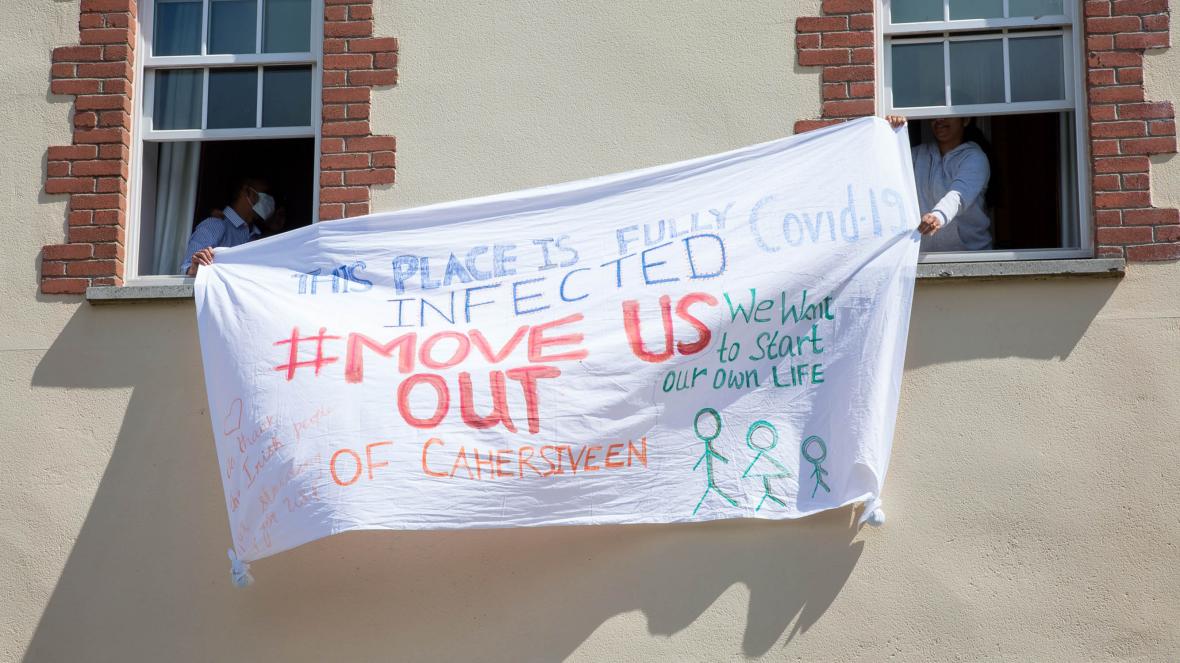 THIS PLACE IS FULLY Covid-19
INFECTED
#MOVE US
OUT
OF CAHERSIVEEN
We Want
to Start
our own LIFE
thank
Irish people
for